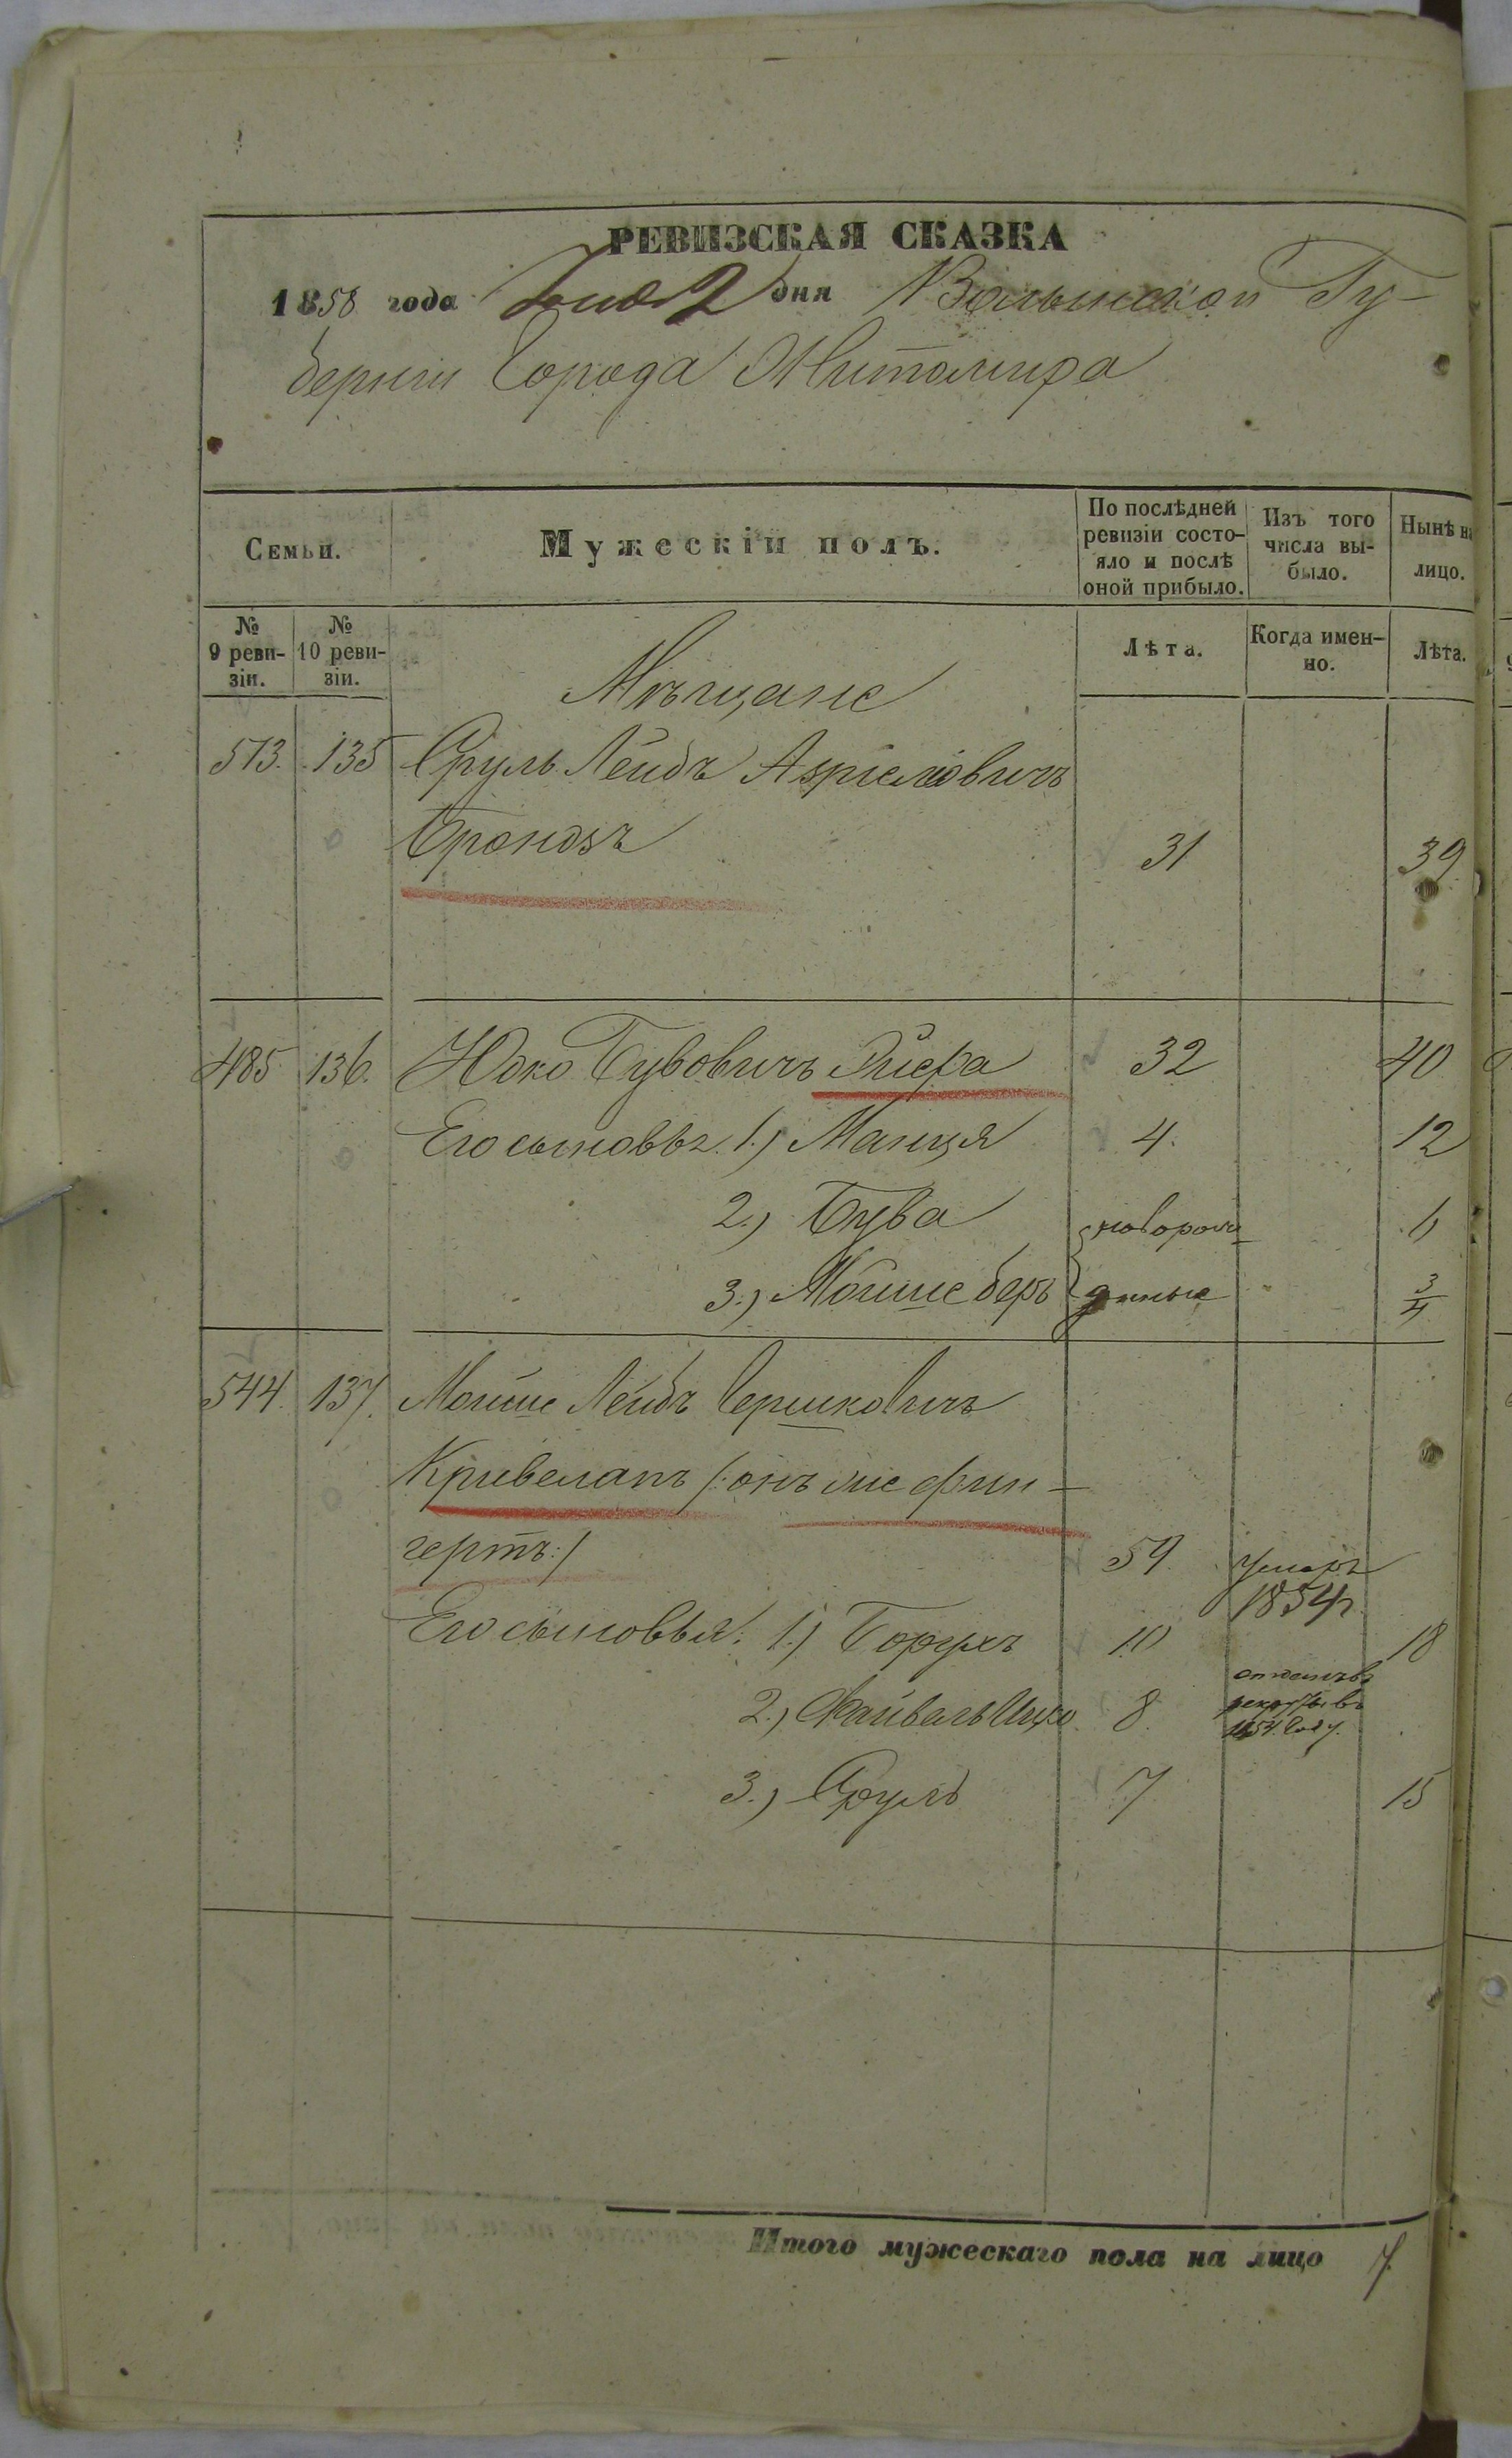 РЕВИЗСКАЯ СКАЗКА
1858 года Июня 2 дня Волынской Гу-
берніи Города Житомира
Семьи.
Мужескій полъ.
По послѣдней ревизіи состо-яло и послѣ оной прибыло.
Изъ того числа вы-было.
Нынѣ на лицо.
№ 9 реви-зіи.
№ 10 реви-зіи.
Лѣта.
Когда имен-но.
Лѣта.
Мѣщане
513. 135 Сруль Лейбъ Азріелевичъ
Бронзъ 31 39
485 136. Юдко Бувовичъ 32 40
Его сыновья 1.) Манця 4. 12
2.) Бува новорож- 6
3.) Мойше беръ денные 3/4
544. 137. Мойше Лейбъ Гершковичъ
Кривелапъ (: онъ же Фин-
гертъ :) 59. Умеръ 1854
Его сыновья: 1.) Борухъ 10 18
2.) Файвель Ицко 8. рекруты въ 1854 году.
3.) Сруль 7 15
Итого мужескаго пола на лицо 7.